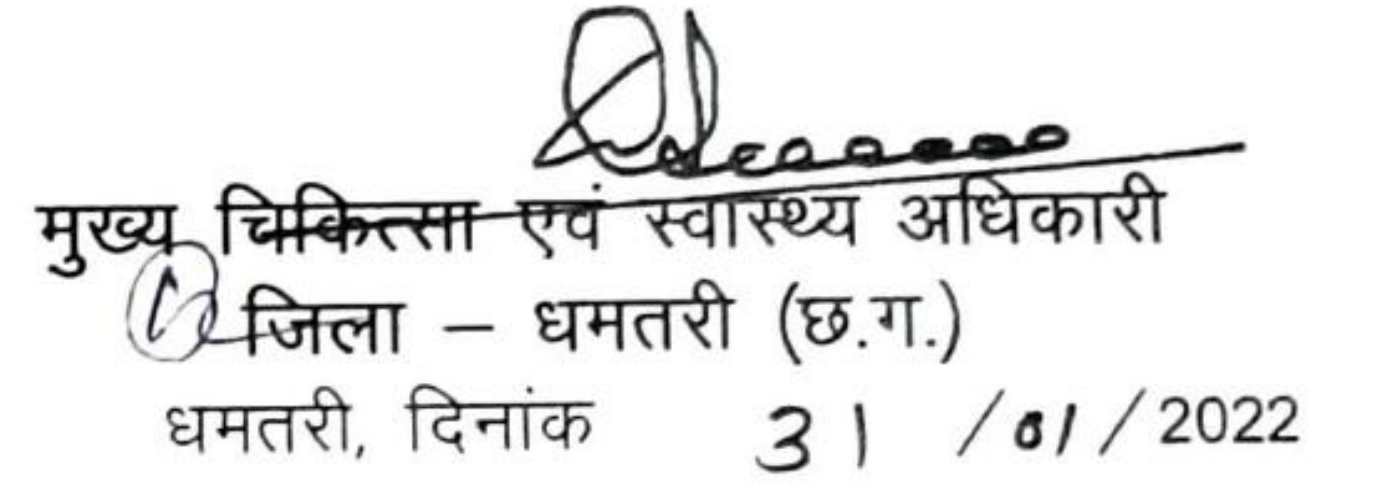 मुख्य चिकित्सा एवं स्वास्थ्य अधिकारी
जिला – धमतरी (छ.ग.)
धमतरी, दिनांक 31 /01/2022